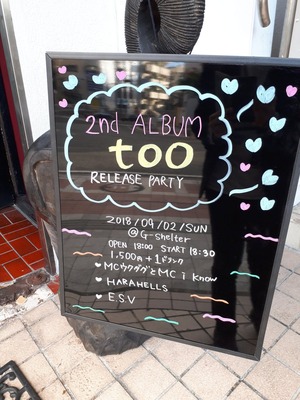 2nd ALBUM
too
RELEASE PARTY
2018/09/02/SUN
@G-shelter
OPEN 18:00 START 18:30
1,500円+1ドリンク
♥MCウクダダとMC i know
♥HARAHELLS
♥E.S.V